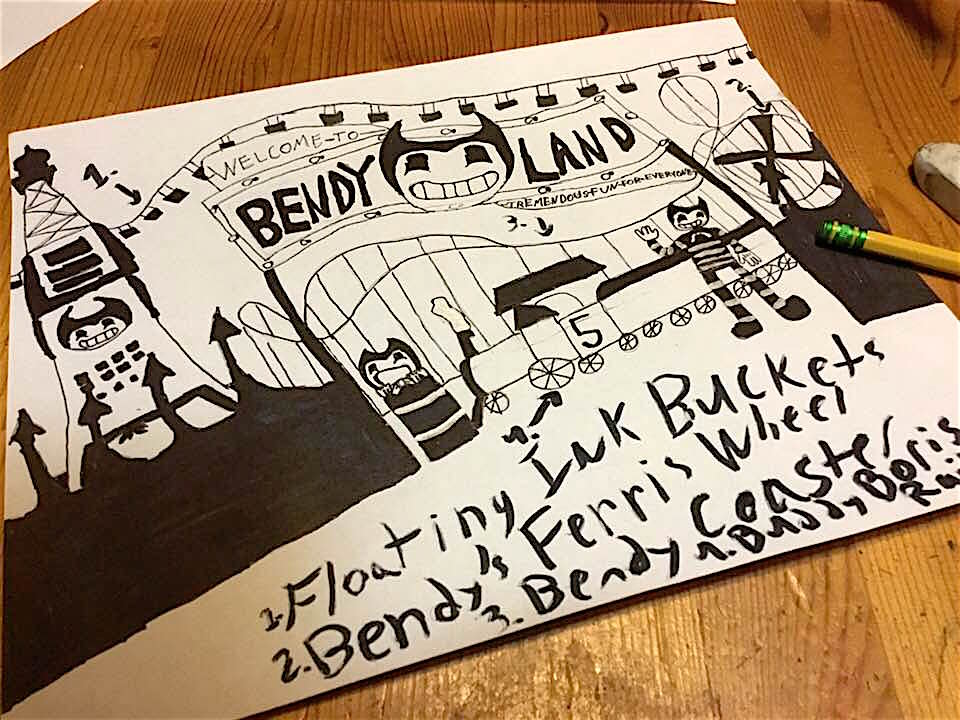 WELCOME-TO
BENDY LAND
TREMENDOUS-FUN-FOR-EVERYONE
1.
2.
3.
5
4.
1. Floating Ink Buckets
2. Bendy's Ferris Wheel
3. Bendy Coaster
4. Buddy Boris